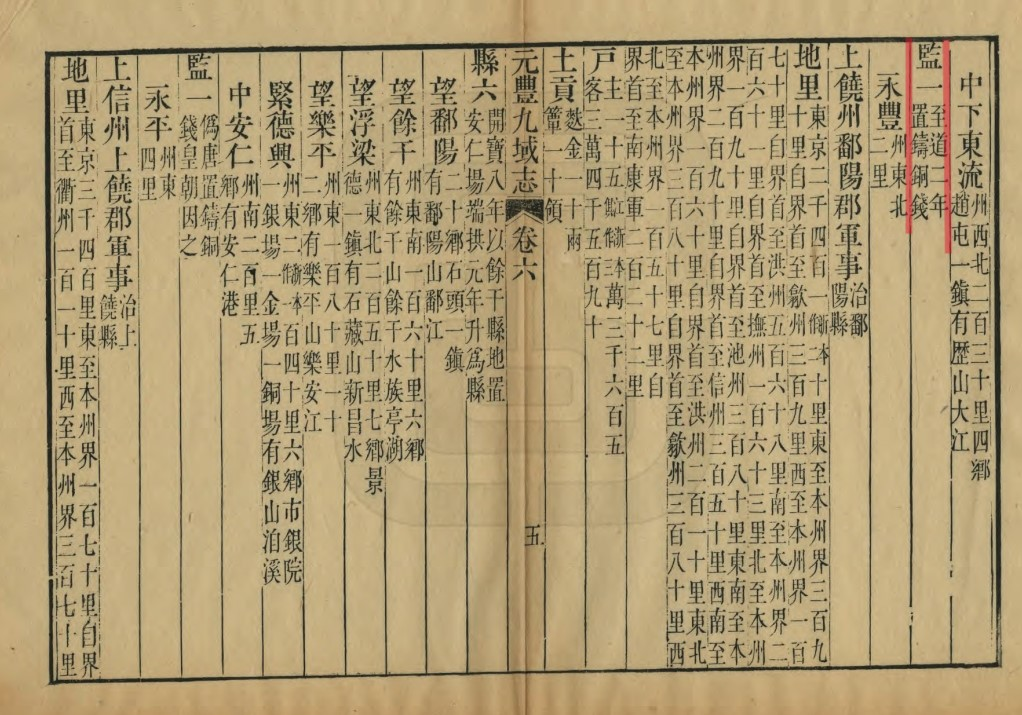 中下東流州西北二百三十里四鄉
趙屯一鎮有歷山大江
監一至道二年
置鑄銅錢
永豐州東北
二里
上饒州鄱陽郡軍事治鄱
陽縣
地里東京二千四百一二十里東至本州界三百九
十里自界首至歙州三百九里西至本州界一百
七十里自界首至洪州五百六十八里南至本州界二
百六十里自界首至撫州一百六十三里北至本州
界一百九十里自界首至池州三百八十里東南至本
州界二百九十里自界首至信州三百五十里西南至
本州界一百六十里自界首至洪州二百一十里東北
至本州界三百八十里自界首至歙州三百八十里西
北至本州界一百五十七里自
界首至南康軍一百二十二里
戶主一十五萬三千六百五
客三萬四千五百九十
土貢麩金一十兩
簟一十領
元豐九域志 卷六 五
縣六開寶八年以餘干縣地置
安仁場端拱元年升爲縣
望鄱陽二十鄉石頭一鎮
有鄱陽山鄱江
望餘干州東南一百六十里六鄉
有餘干山餘干水族亭湖
望浮梁州東北二百五十里七鄉景
德一鎮有石藏山新昌水
望樂平州東一百八十里一十
二鄉有樂平山樂安江
緊德興州東二百四十里六鄉市銀院
一銀場一金場一銅場有銀山洎溪
中安仁州南二百里五
鄉有安仁港
監一僞唐置鑄銅
錢皇朝因之
永平州東
四里
上信州上饒郡軍事治上
饒縣
地里東京三千四百里東至本州界一百七十里自界
首至衢州一百一十里西至本州界三百七十里